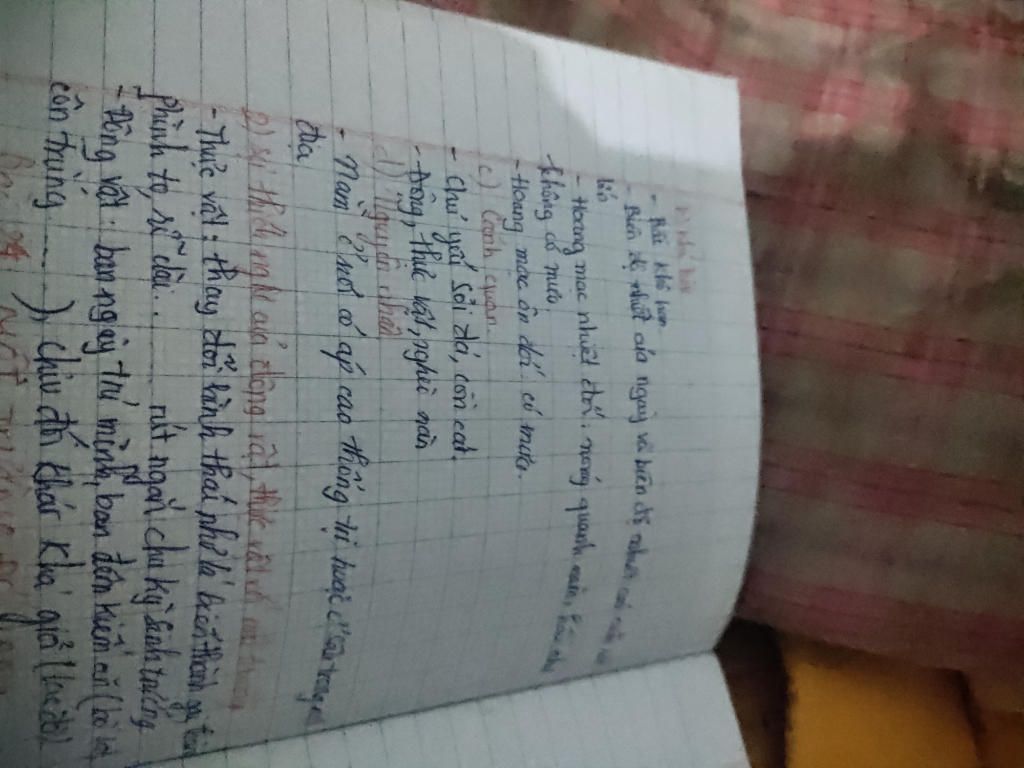 b) khí hậu
- Rất khô hạn
- Biên độ nhiệt của ngày và biên độ nhiệt
- Hoang mạc nhiệt đới: nóng quanh năm, hầu như
không có mưa
- Hoang mạc ôn đới: có mưa
c) Cảnh quan.
- Chủ yếu sỏi đá, cồn cat.
- Động, thực vật, nghèo nàn
d) Nguyên nhân
- Nằm ở nơi có áp cao thống trị hoặc ở sâu trong
địa
2) sự thích nghi của động vật, thực vật với môi trường
- Thực vật: thay đổi hình thái như lá biến thành gai, thân
phình to, rễ dài..... rút ngắn chu kỳ sinh trưởng
- Động vật: ban ngày trú mình, ban đêm kiếm ăn (bò sát
côn trùng ......) chịu đói khát khá giỏi (lạc đà)